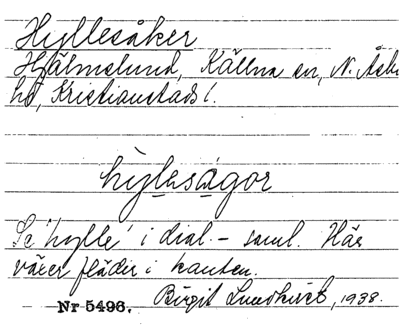 Hyllesåker
Hjälmslund, Källna sn, N. Åsbo
hd, Kristianstads l.
hỳlesågor
Se 'hylle' i dial. - saml. Här
växer fläder i kanten.
Nr 5496. Birgit Lundkvist, 1938.